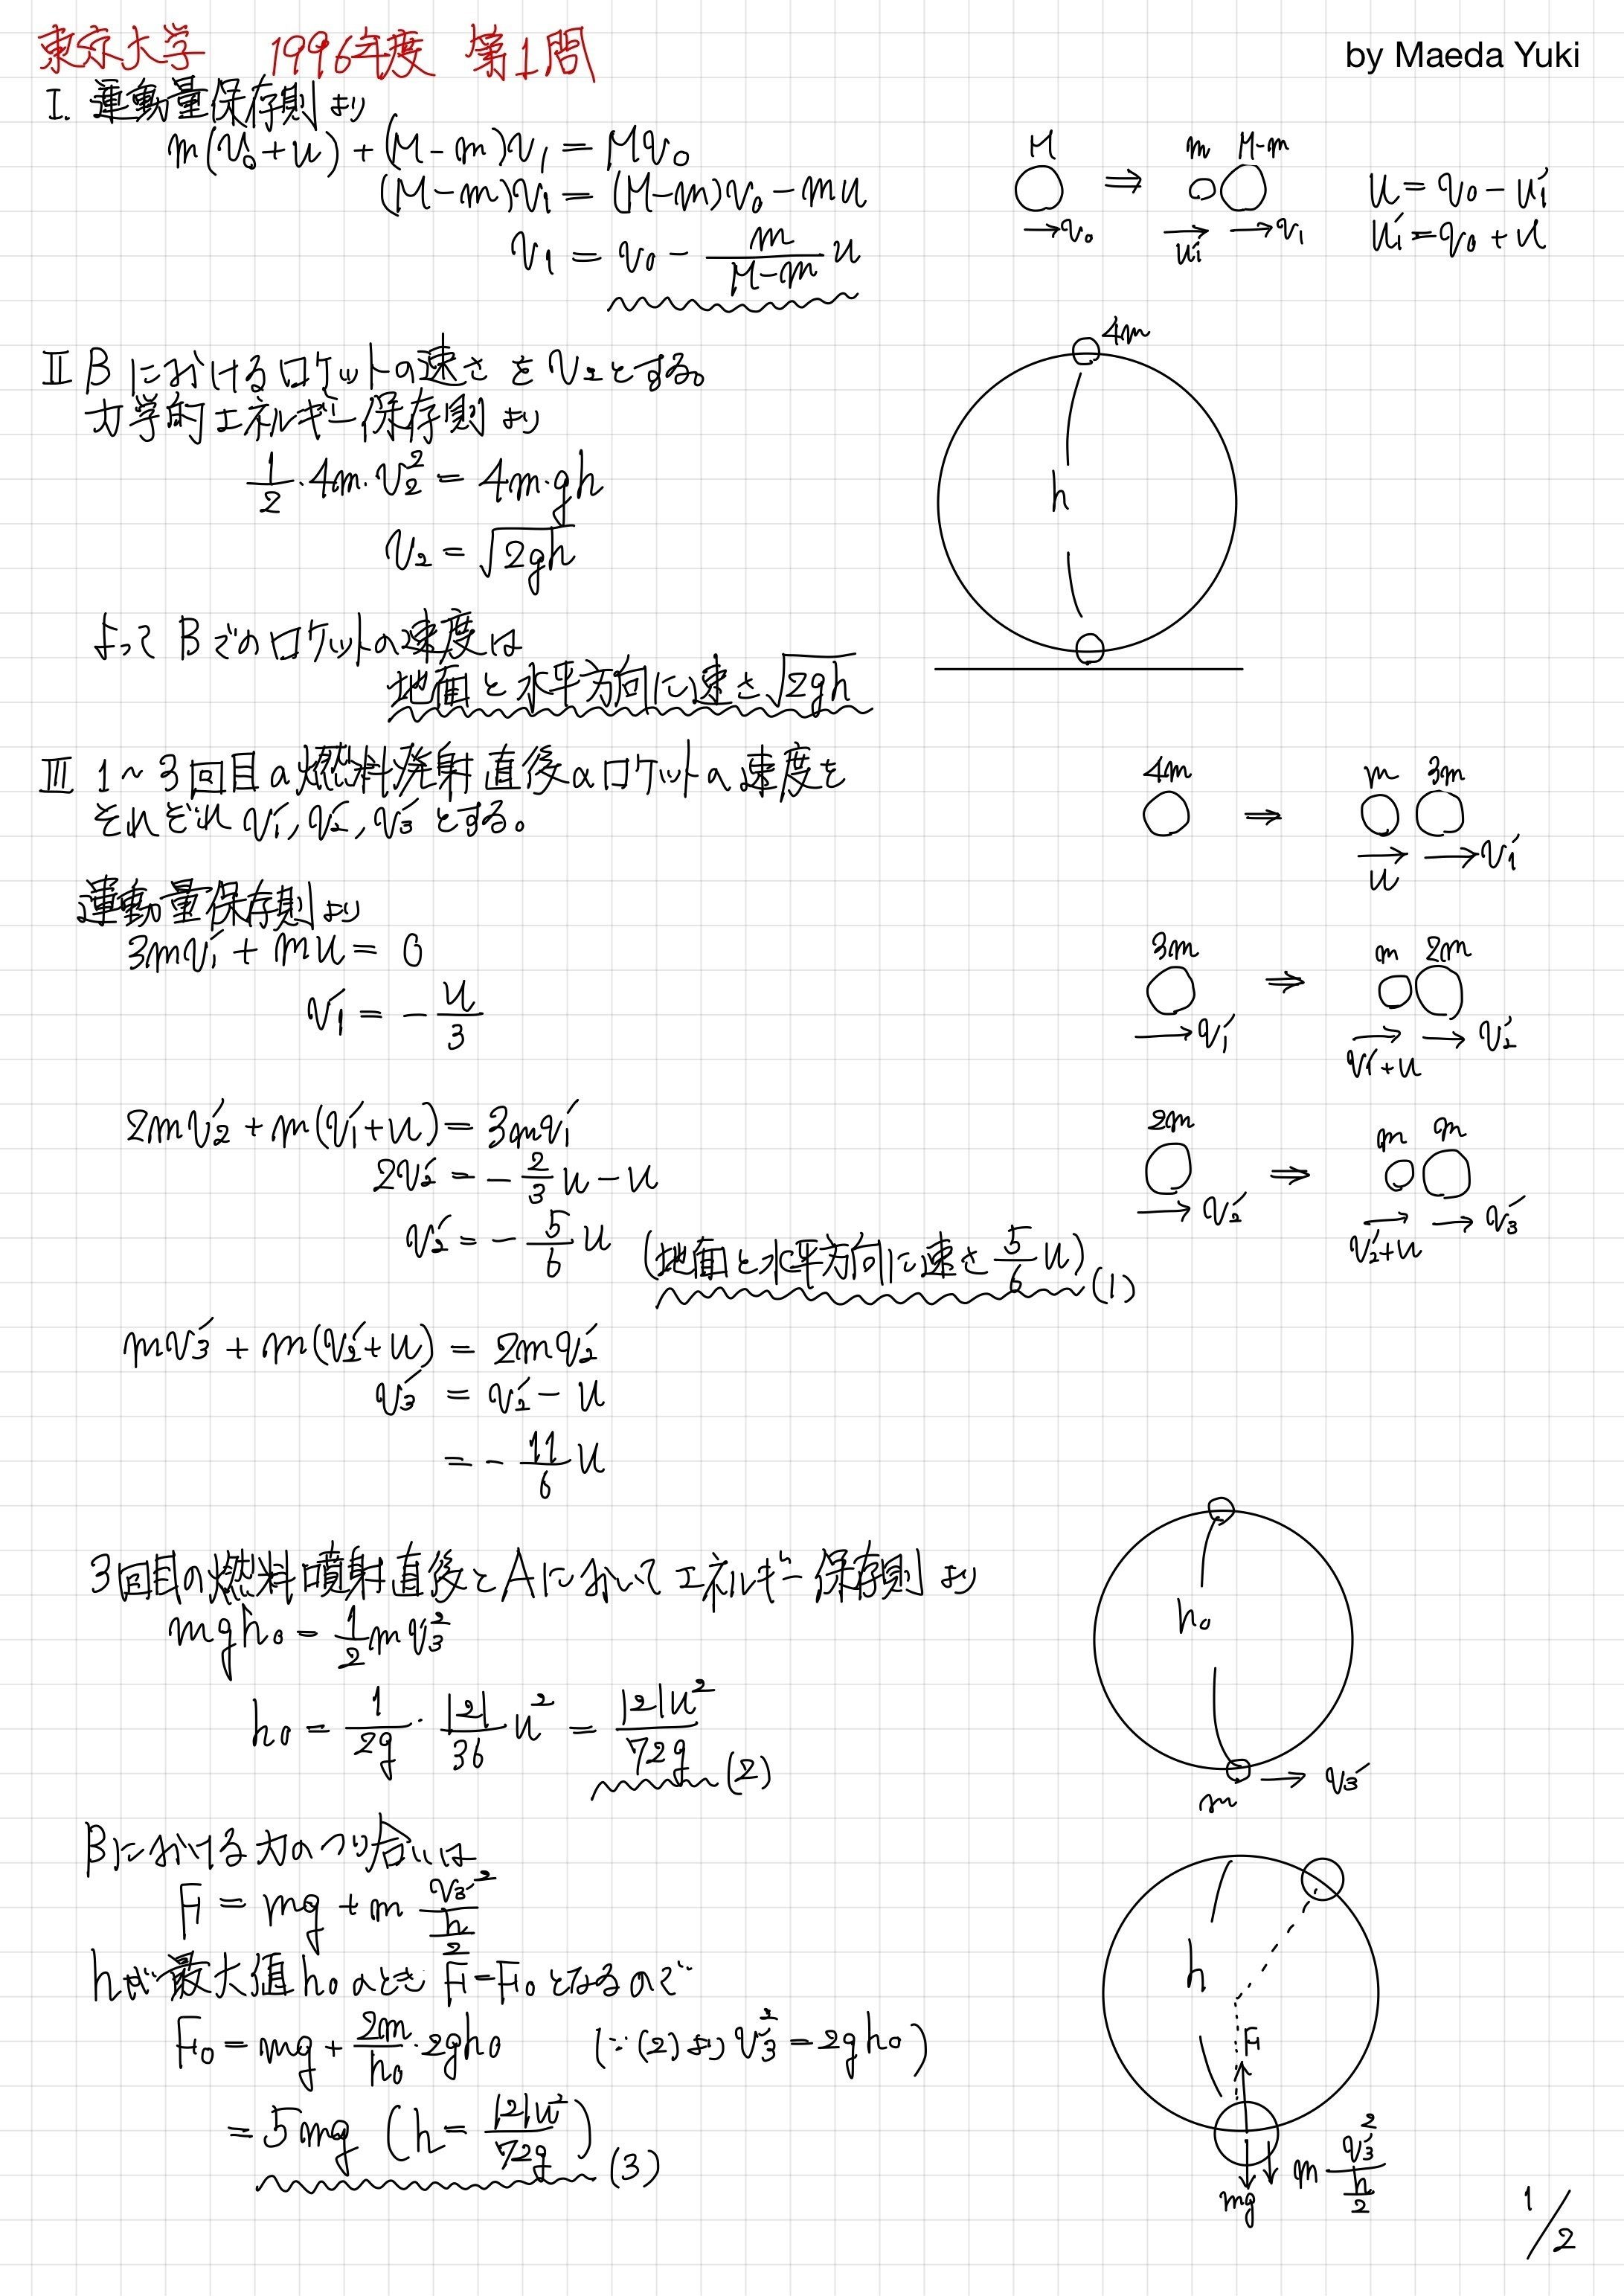 東京大学 1996年度 第1問
by Maeda Yuki
I. 運動量保存則より
m(v₀+u)+(M-m)v₁=Mv₀
(M-m)v₁=(M-m)v₀-mu
v₁=v₀-\frac{m}{M-m}u
M ⇒ m M-m
→v₀ → u₁' →v₁
u=v₀-u₁'
u₁'=v₀+u
II Bにおけるロケットの速さをv₂とする。
力学的エネルギー保存則より
\frac{1}{2}・4m・v₂²=4m・gh
v₂=√2gh
よってBでのロケットの速度は
地面と水平方向に速さ√2gh
4m
h
III 1~3回目の燃料発射直後のロケットの速度を
それぞれv₁', v₂', v₃'とする。
運動量保存則より
3mv₁'+mu=0
v₁'=-\frac{u}{3}
2mv₂'+m(v₁'+u)=3mv₁'
2v₂'=-\frac{2}{3}u-u
v₂'=-\frac{5}{6}u (地面と水平方向に速さ\frac{5}{6}u) (1)
mv₃'+m(v₂'+u)=2mv₂'
v₃'=v₂'-u
=-\frac{11}{6}u
4m ⇒ m 3m
→ u → v₁'
3m ⇒ m 2m
→ v₁' → v₁'+u → v₂'
2m ⇒ m m
→ v₂' → v₂'+u → v₃'
3回目の燃料噴射直後とAにおいてエネルギー保存則より
mgh₀=\frac{1}{2}mv₃'²
h₀=\frac{1}{2g}・\frac{121}{36}u²=\frac{121u²}{72g} (2)
h₀
m → v₃'
Bにおける力のつり合いは
F=mg+m\frac{v₃'²}{\frac{h}{2}}
hが最大値h₀のときF=F₀となるので
F₀=mg+\frac{2m}{h₀}・2gh₀ (∵(2)より v₃'²=2gh₀)
=5mg (h=\frac{121u²}{72g}) (3)
h
F
mg
m\frac{v₃'²}{\frac{h}{2}}
1/2